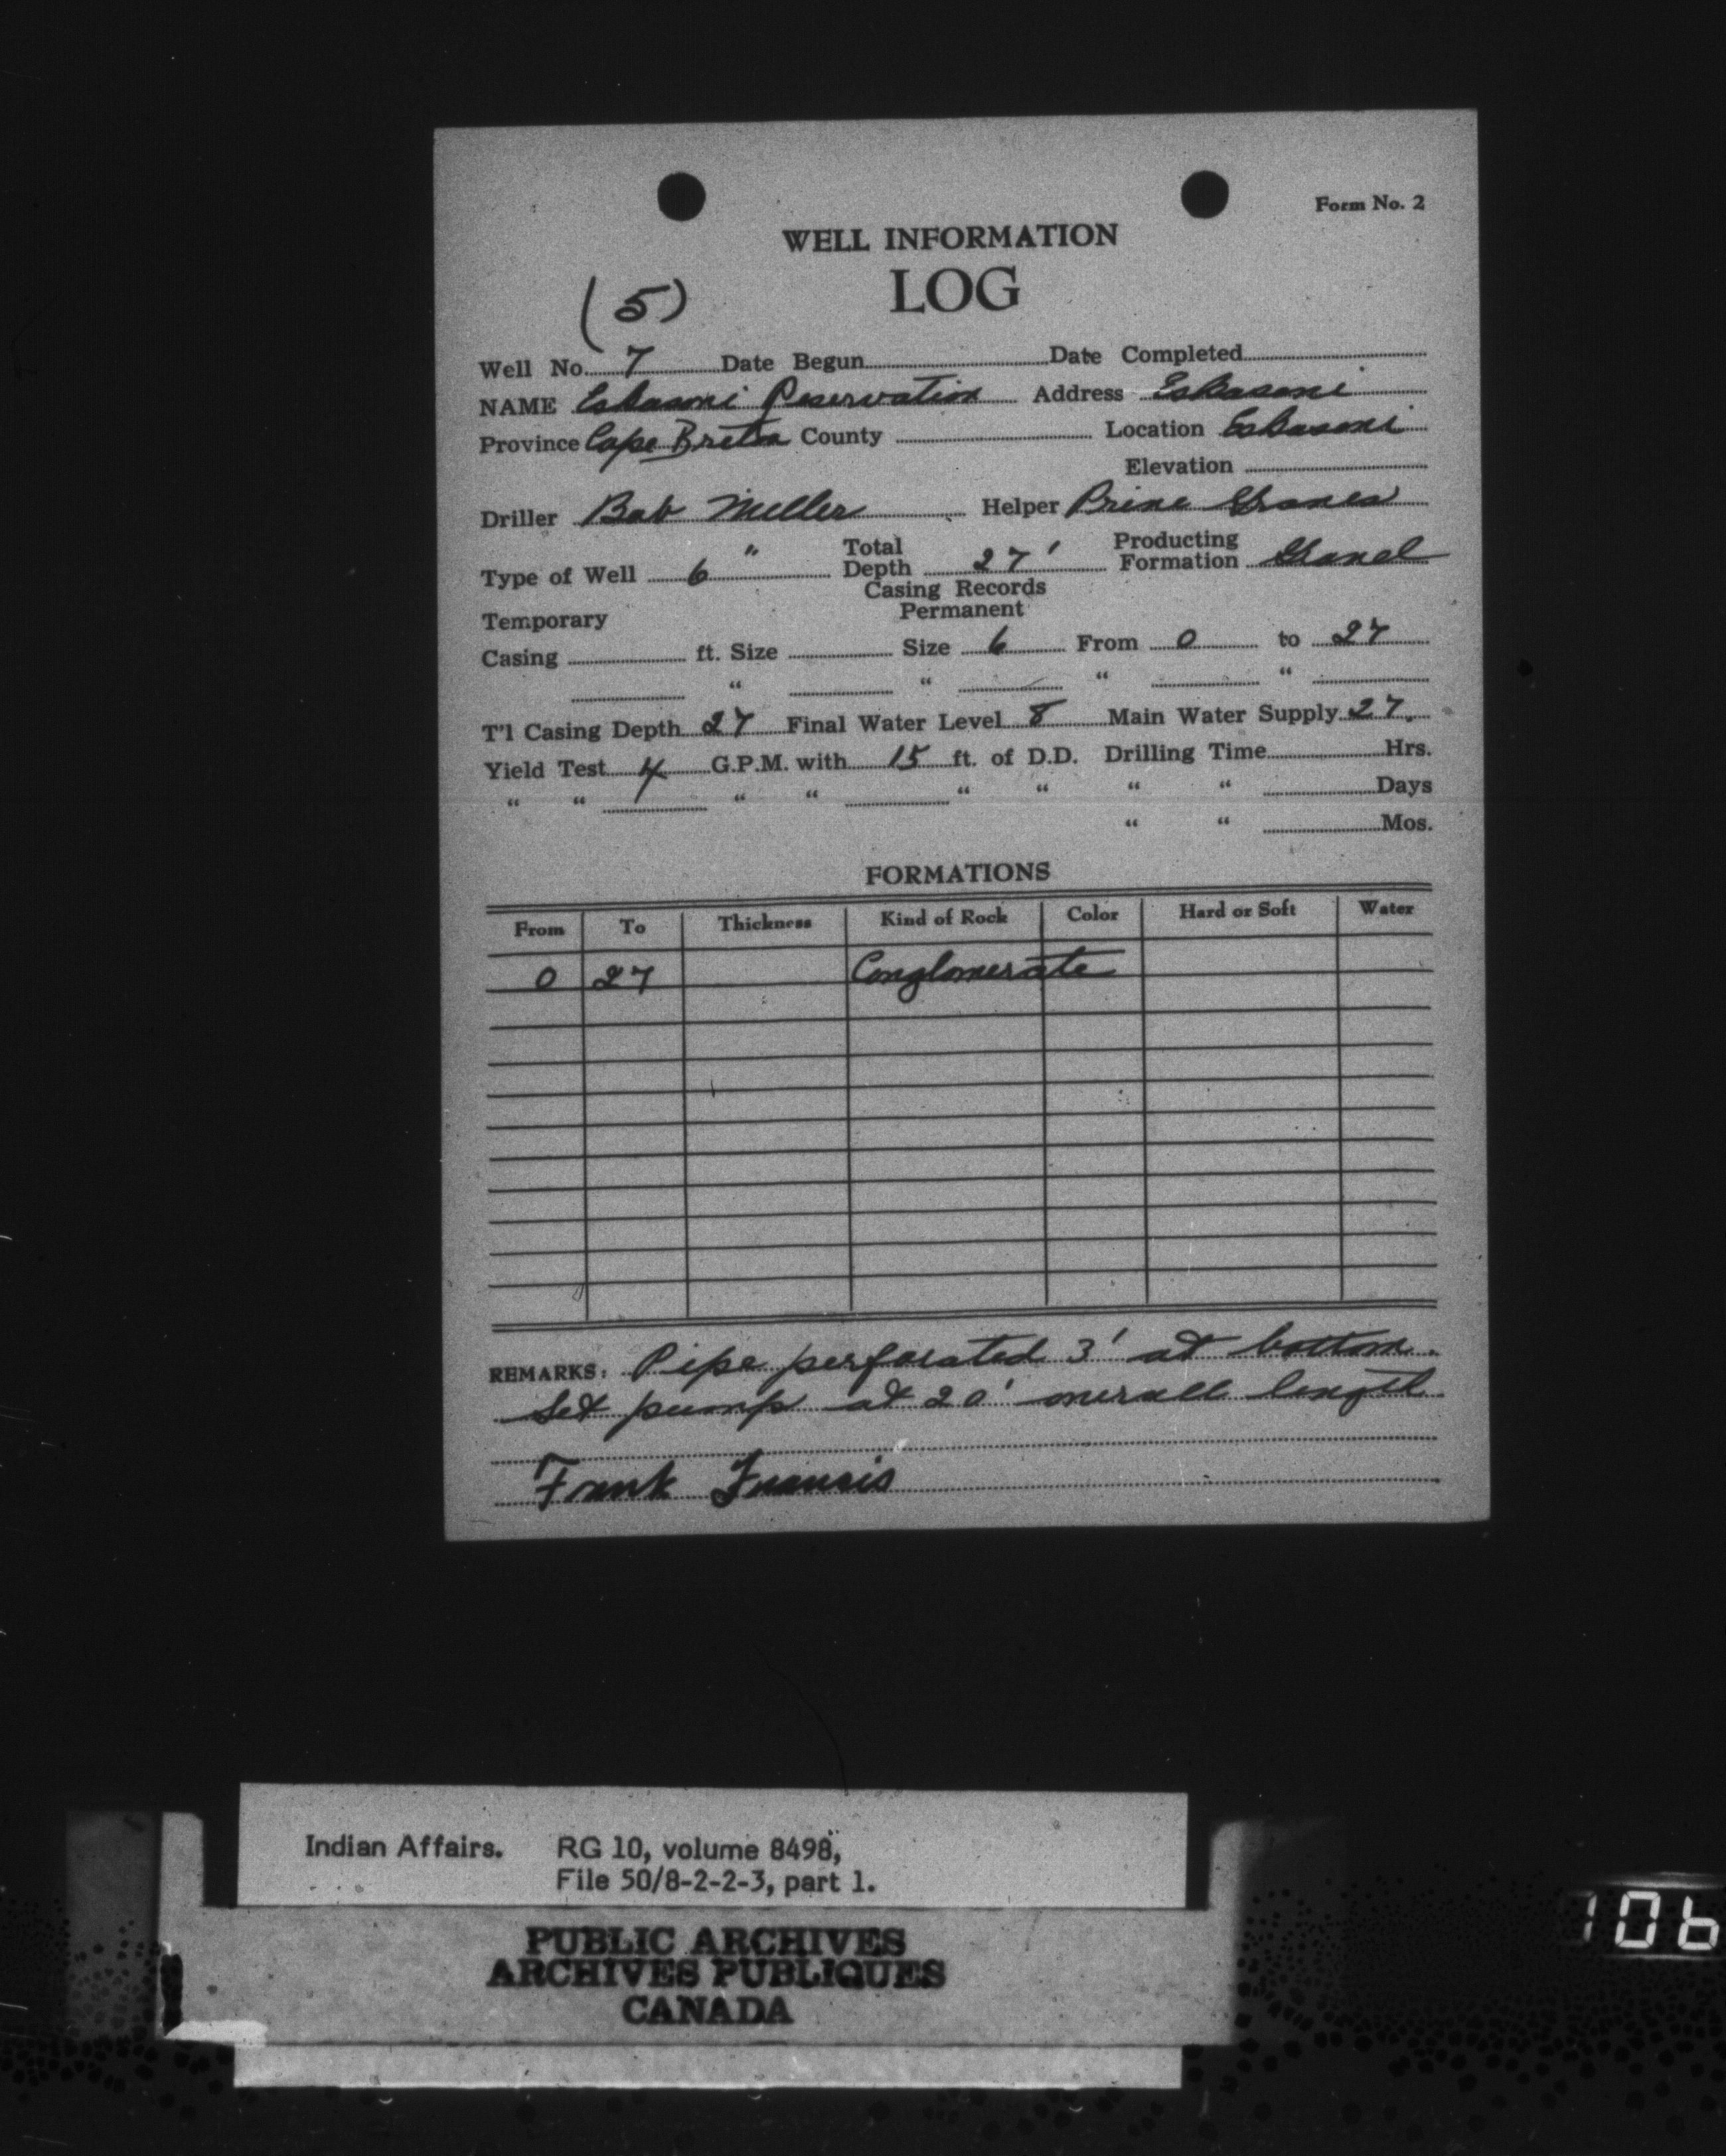 Form No. 2
WELL INFORMATION
LOG
(5)
Well No. 7 Date Begun Date Completed
NAME Eskasoni Reservation Address Eskasoni
Province Cape Breton County Location Eskasoni
Elevation
Driller Bob Miller Helper
Type of Well 6" Total Depth 27' Producting Formation Gravel
Casing Records
Temporary Permanent
Casing ft. Size Size 6 From 0 to 27
" " " "
T'l Casing Depth 27 Final Water Level 8 Main Water Supply 27.
Yield Test 4 G.P.M. with 15 ft. of D.D. Drilling Time Hrs.
" " " " " " " " Days
" " Mos.
FORMATIONS
From To Thickness Kind of Rock Color Hard or Soft Water
0 27 Conglomerate
REMARKS: Pipe perforated 3' at bottom.
Set pump at 20' overall length
Frank Francis
Indian Affairs. RG 10, volume 8498,
File 50/8-2-2-3, part 1.
PUBLIC ARCHIVES
ARCHIVES PUBLIQUES
CANADA
106